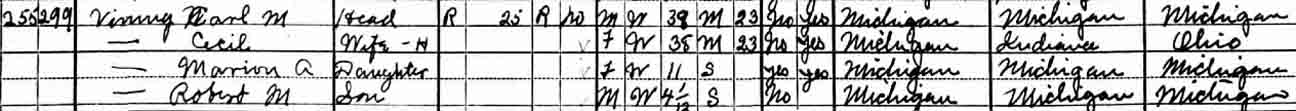 255 299 Vining Earl M Head R 25 R No M W 39 M 23 No Yes Michigan Michigan Michigan
— Cecil Wife - H ✓ F W 38 M 23 No Yes Michigan Indiana Ohio
— Marion A Daughter ✓ F W 11 S Yes Yes Michigan Michigan Michigan
— Robert M Son M W 4 1/12 S No Michigan Michigan Michigan